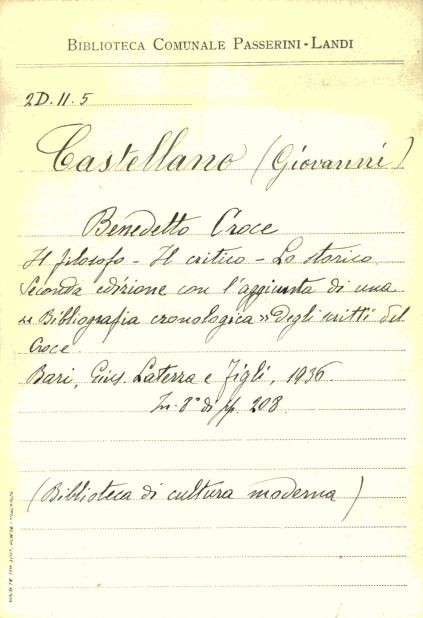 BIBLIOTECA COMUNALE PASSERINI-LANDI
2D.II.5
Castellano (Giovanni)
Benedetto Croce
Il filosofo - Il critico - Lo storico
Seconda edizione con l'aggiunta di una
«Bibliografia cronologica» degli scritti del
Croce.
Bari, Gius. Laterza e Figli, 1936.
In-8° di pp. 208.
(Biblioteca di cultura moderna)